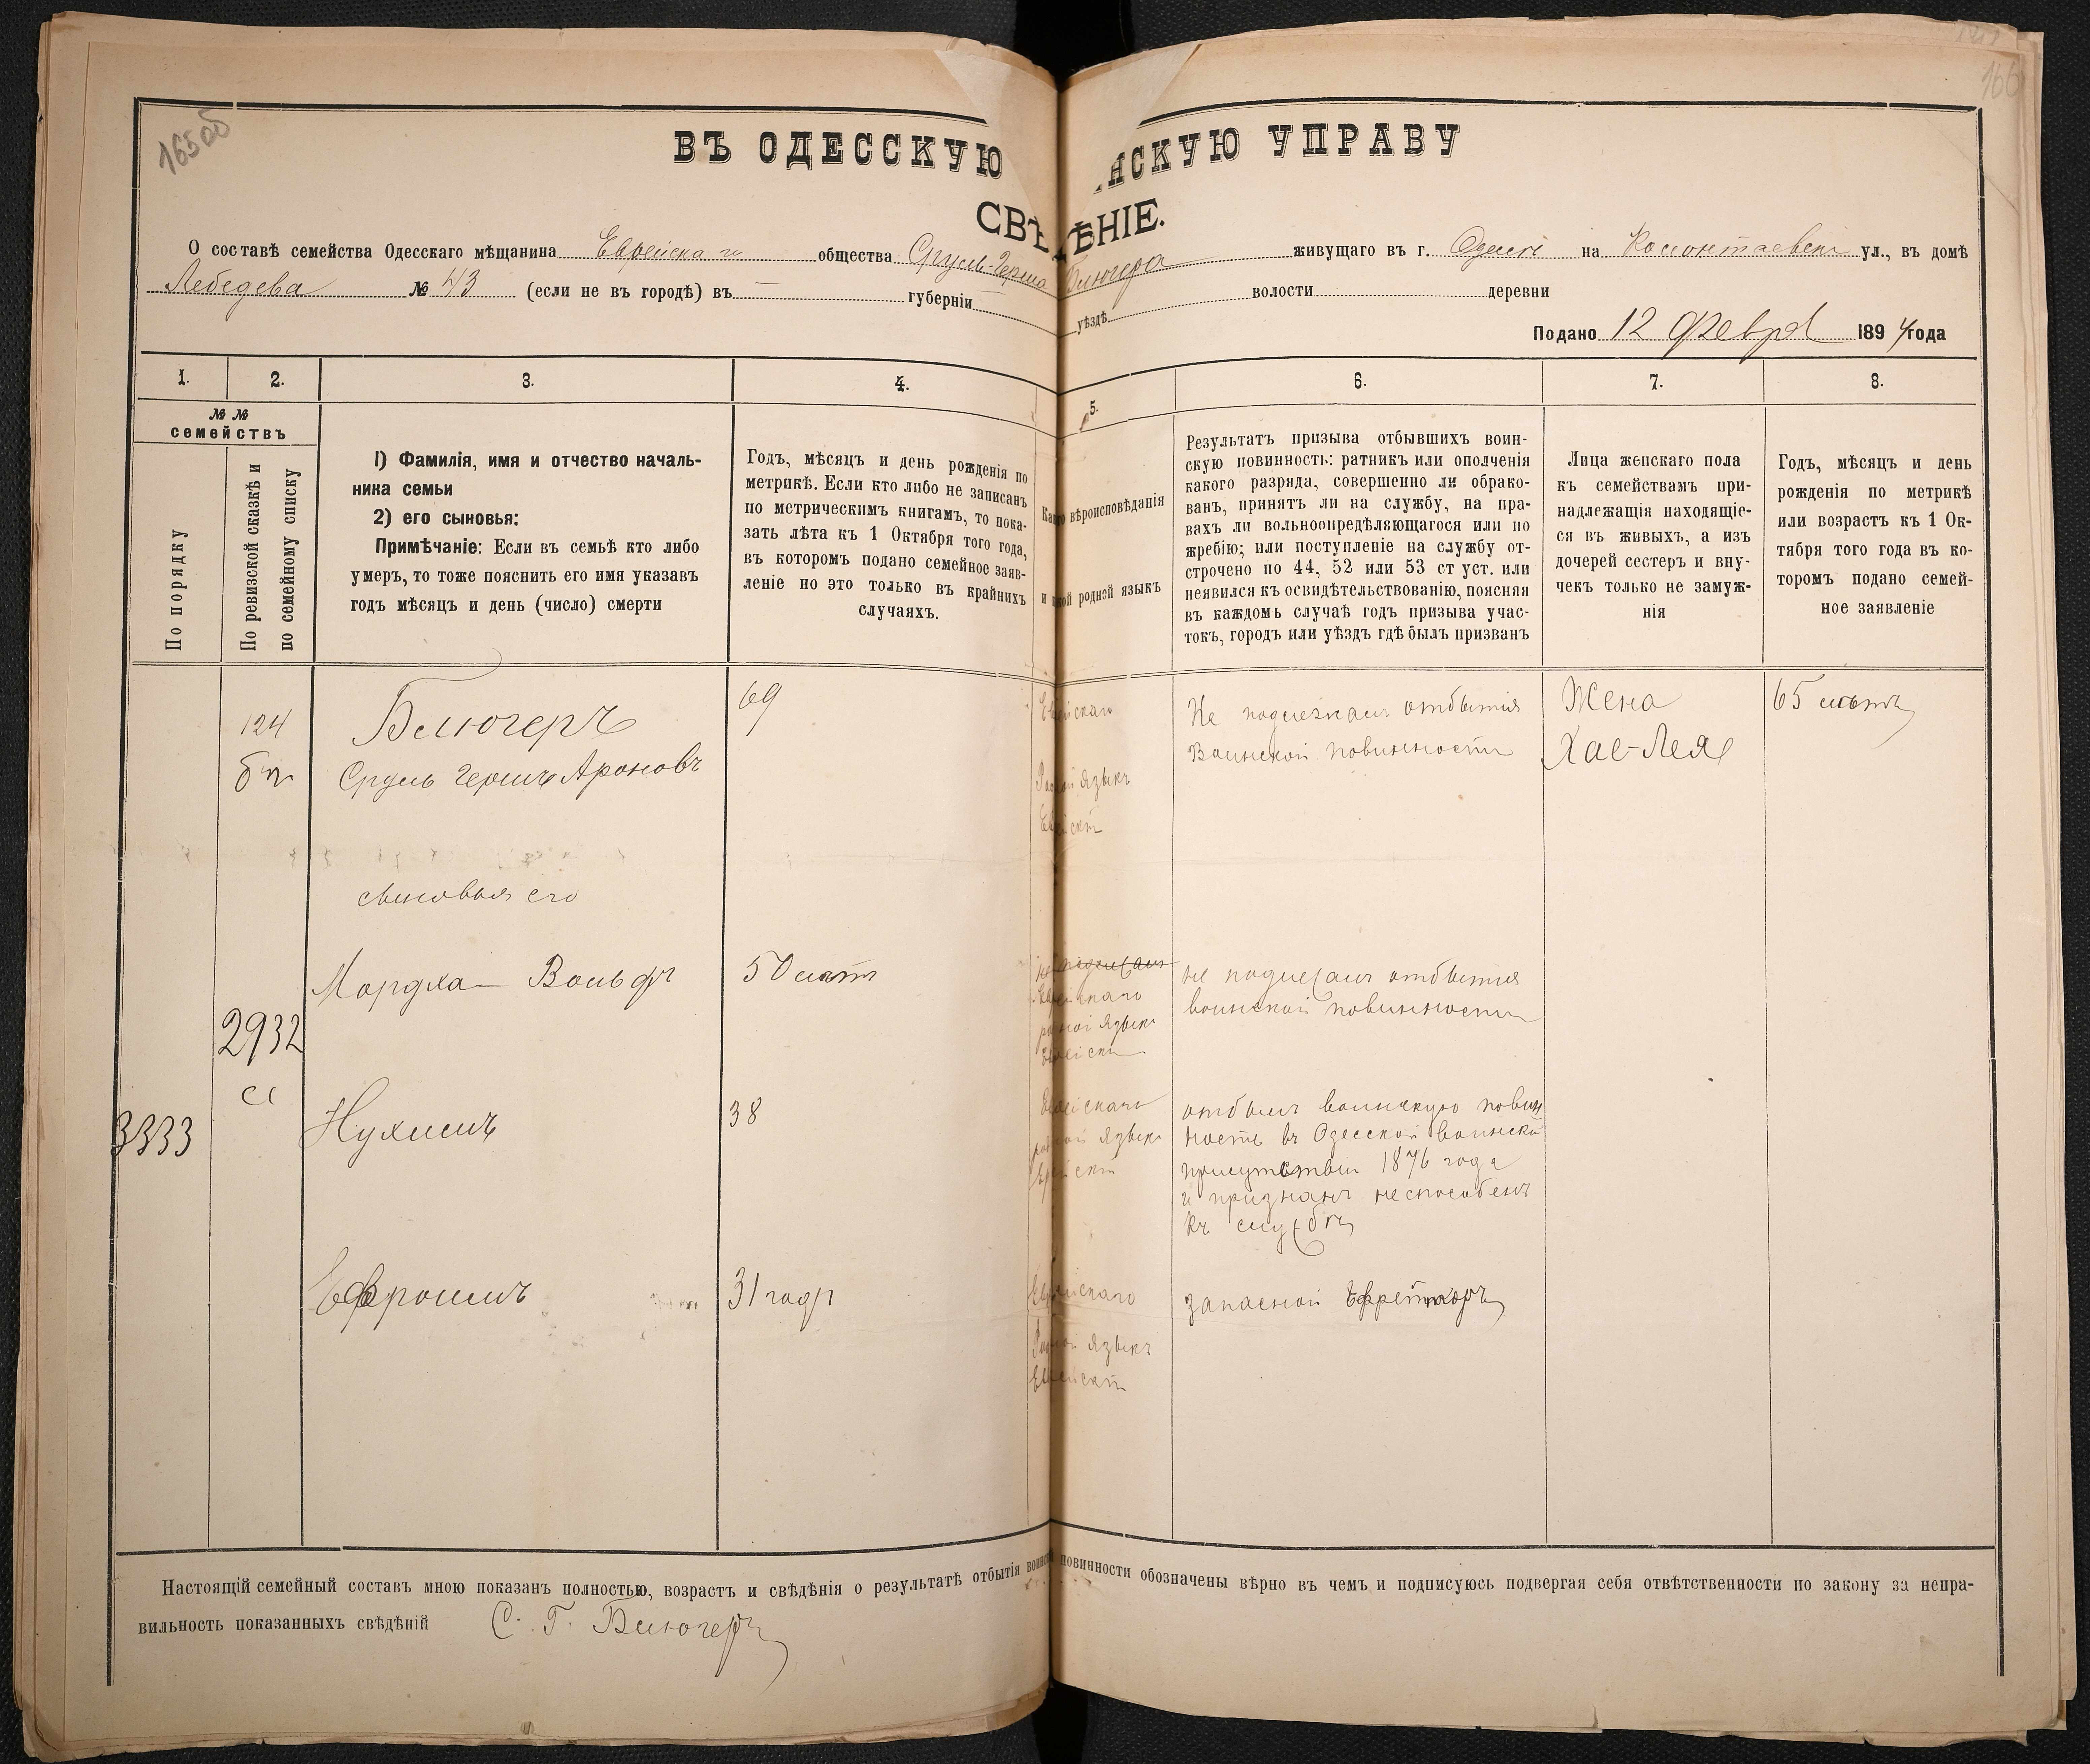 165об
166
ВЪ ОДЕССКУЮ НСКУЮ УПРАВУ
СВѢДѢНІЕ.
О составѣ семейства Одесскаго мѣщанина Еврейскаго общества Сруль-Герша Блюгера живущаго въ г. Одессѣ на Колонтаевской ул., въ домѣ
Лебедева № 43 (если не въ городѣ) въ — губерніи уѣздѣ волости деревни
Подано 12 Феврл 1894 года
1. 2. 3. 4. 5. 6. 7. 8.
№ №
семействъ
По порядку
По ревизской сказкѣ и
по семейному списку
1) Фамилія, имя и отчество началь-
ника семьи
2) его сыновья:
Примѣчаніе: Если въ семьѣ кто либо
умеръ, то тоже пояснить его имя указавъ
годъ мѣсяцъ и день (число) смерти
Годъ, мѣсяцъ и день рожденія по
метрикѣ. Если кто либо не записанъ
по метрическимъ книгамъ, то пока-
зать лѣта къ 1 Октября того года,
въ которомъ подано семейное заяв-
леніе но это только въ крайнихъ
случаяхъ.
Какого вѣроисповѣданія
и какой родной языкъ
Результатъ призыва отбывшихъ воин-
скую повинность: ратникъ или ополченія
какого разряда, совершенно ли обрако-
ванъ, принятъ ли на службу, на пра-
вахъ ли вольноопредѣляющагося или по
жребію; или поступленіе на службу от-
строчено по 44, 52 или 53 ст уст. или
неявился къ освидѣтельствованію, поясняя
въ каждомъ случаѣ годъ призыва учас-
токъ, городъ или уѣздъ гдѣ былъ призванъ
Лица женскаго пола
къ семействамъ при-
надлежащія находящіе-
ся въ живыхъ, а изъ
дочерей сестеръ и вну-
чекъ только не замуж-
нія
Годъ, мѣсяцъ и день
рожденія по метрикѣ
или возрастъ къ 1 Ок-
тября того года въ ко-
торомъ подано семей-
ное заявленіе
124
Блюгеръ
Сруль Гершъ Ароновъ
69
Еврейскаго
Родной языкъ
Еврейскій
Не подлежалъ отбытія
Воинской повинности
Жена
Хае-Лея
65 лѣтъ
сыновья его
Мордха — Вольфъ
50 лѣтъ
не подлежалъ
Еврейскаго
родной языкъ
Еврейскій
не подлежалъ отбытія
воинской повинности
2932
а
3333
Нухимъ
38
Еврейскаго
родной языкъ
Еврейскій
отбылъ воинскую повин
ность въ Одесской воинской
присутствіи 1876 года
и признанъ неспособенъ
къ службѣ
Ефроимъ
31 годъ
Еврейскаго
Родной языкъ
Еврейскій
запасной Ефрейторъ
Настоящій семейный составъ мною показанъ полностью, возрастъ и свѣдѣнія о результатѣ отбытія воинской повинности обозначены вѣрно въ чемъ и подписуюсь подвергая себя отвѣтственности по закону за непра-
вильность показанныхъ свѣдѣній С. Г. Блюгеръ